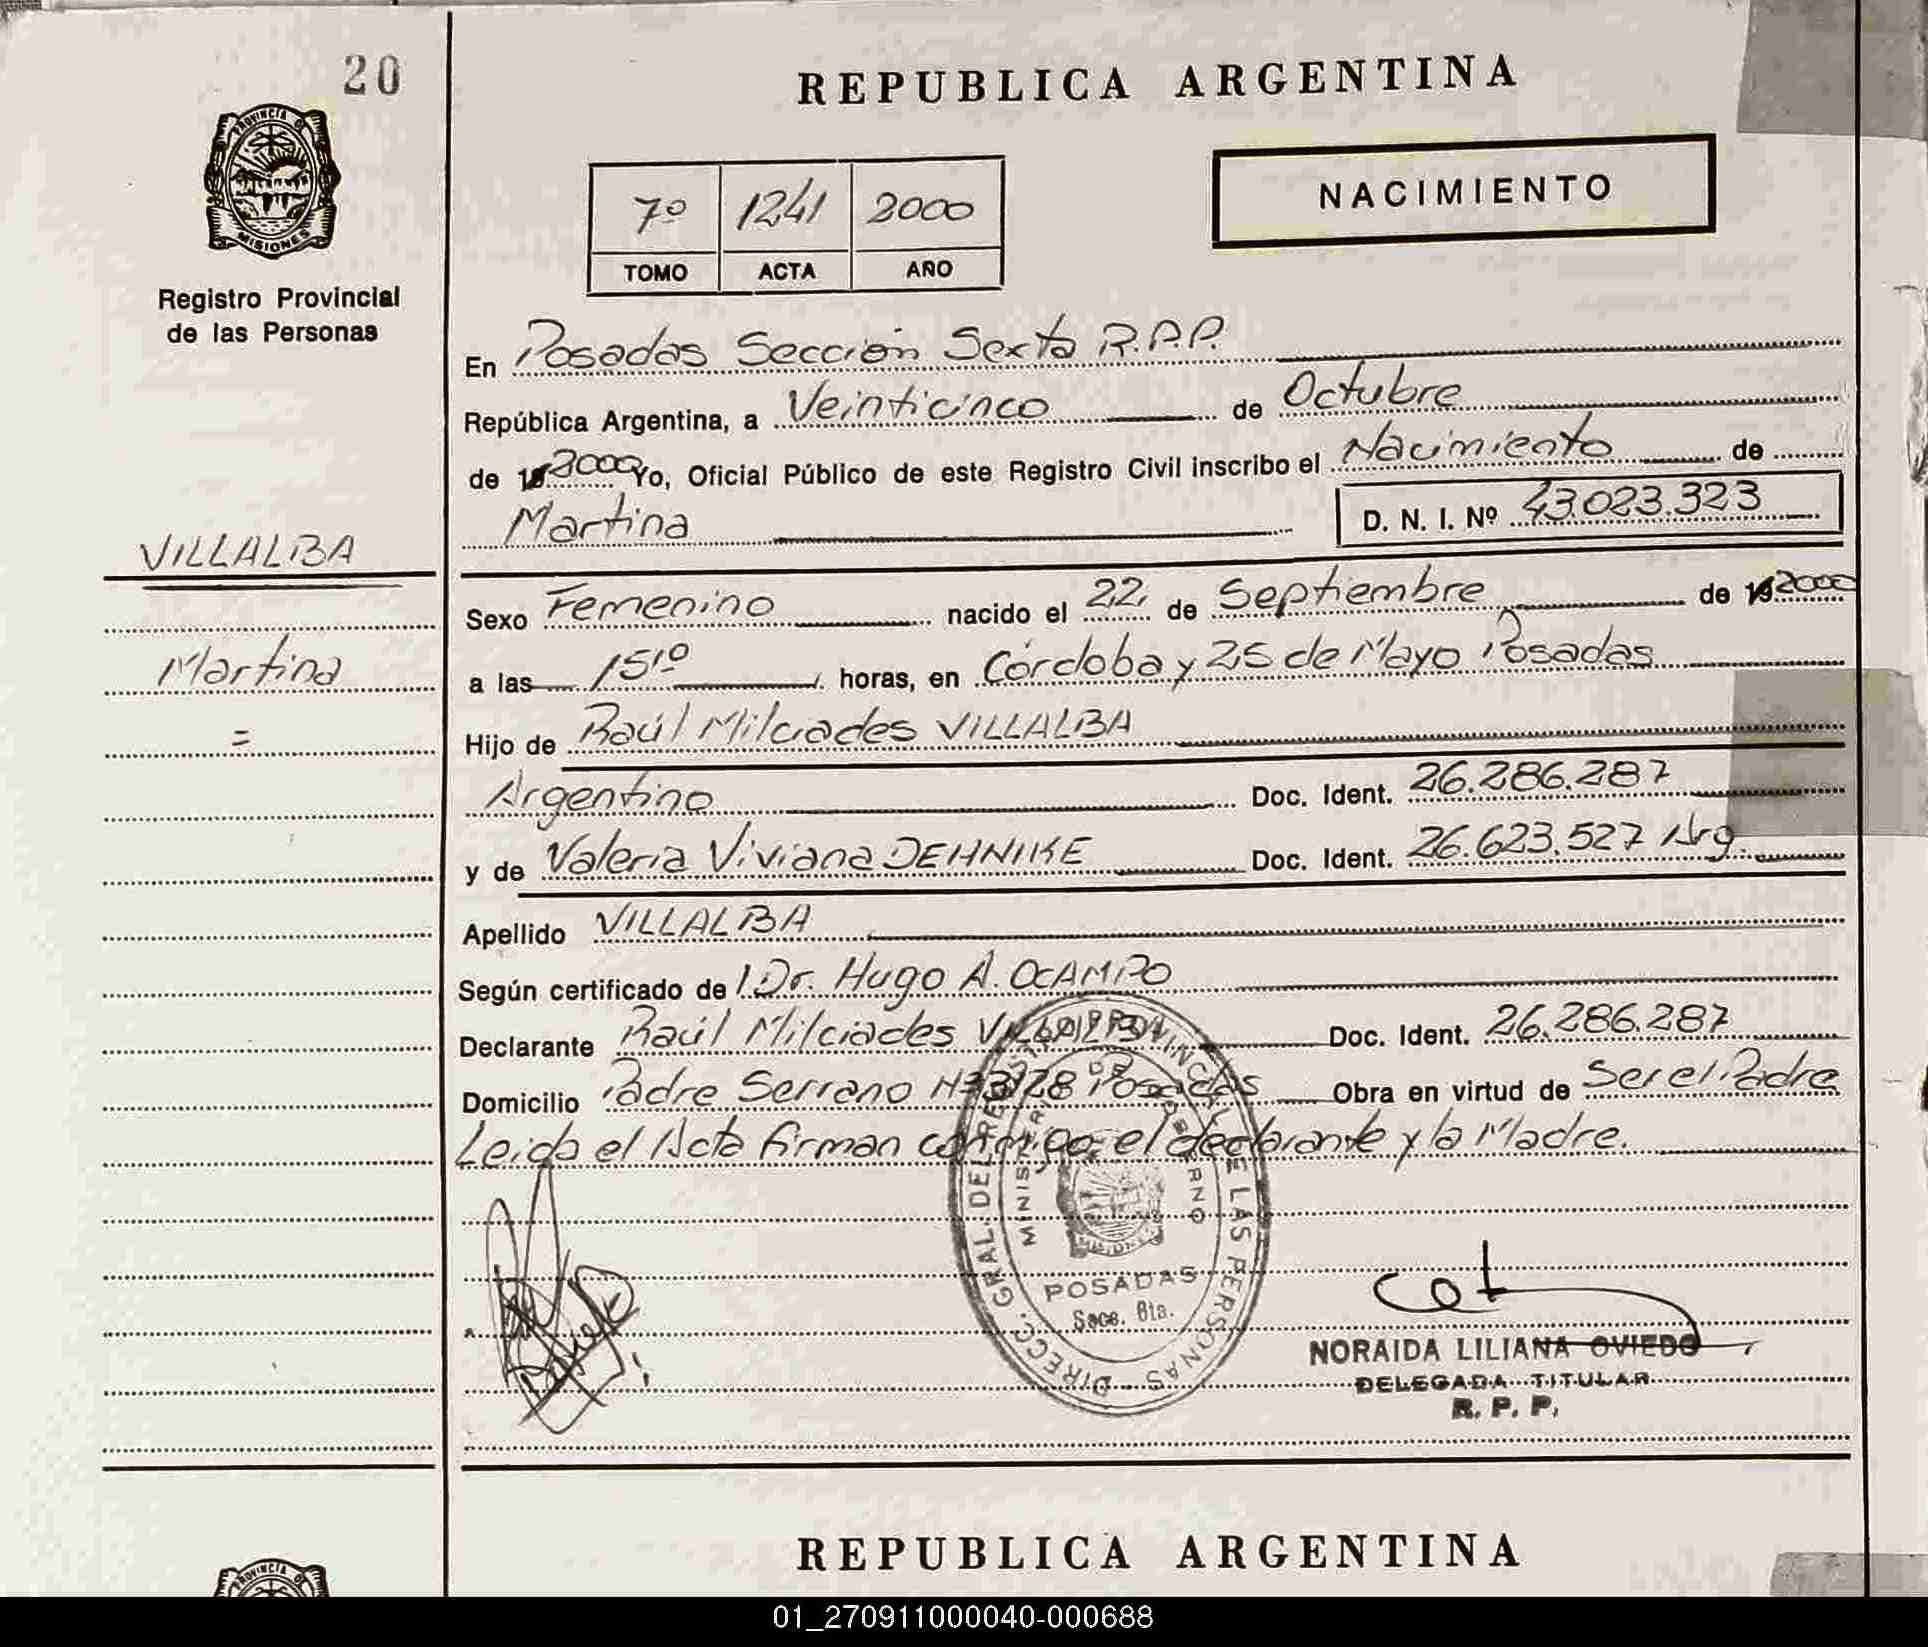 20
REPUBLICA ARGENTINA
PROVINCIA DE
MISIONES
Registro Provincial
de las Personas
7º 1241 2000
TOMO ACTA AÑO
NACIMIENTO
En Posadas Sección Sexta R.P.P.
República Argentina, a Veinticinco de Octubre
de 2000 Yo, Oficial Público de este Registro Civil inscribo el Nacimiento de
Martina D. N. I. Nº 43.023.323
VILLALBA
Sexo Femenino nacido el 22 de Septiembre de 2000
Martina
a las 15,1º horas, en Córdoba y 25 de Mayo Posadas
=
Hijo de Raúl Milciades VILLALBA
Argentino Doc. Ident. 26.286.287
y de Valeria Viviana DEHNIKE Doc. Ident. 26.623.527 Arg.
Apellido VILLALBA
Según certificado de Dr. Hugo A. OCAMPO
Declarante Raúl Milciades VILLALBA Doc. Ident. 26.286.287
Domicilio Padre Serrano Nº 3128 Posadas Obra en virtud de Ser el Padre
Leida el Acta firman conmigo el declarante y la Madre.
DIRECC. GRAL. DEL REG. PROVINCIAL DE LAS PERSONAS
MINISTERIO DE GOBIERNO
MISIONES
POSADAS
Secc. 6ta.
NORAIDA LILIANA OVIEDO
DELEGADA TITULAR
R. P. P.
REPUBLICA ARGENTINA
PROVINCIA DE
01_270911000040-000688